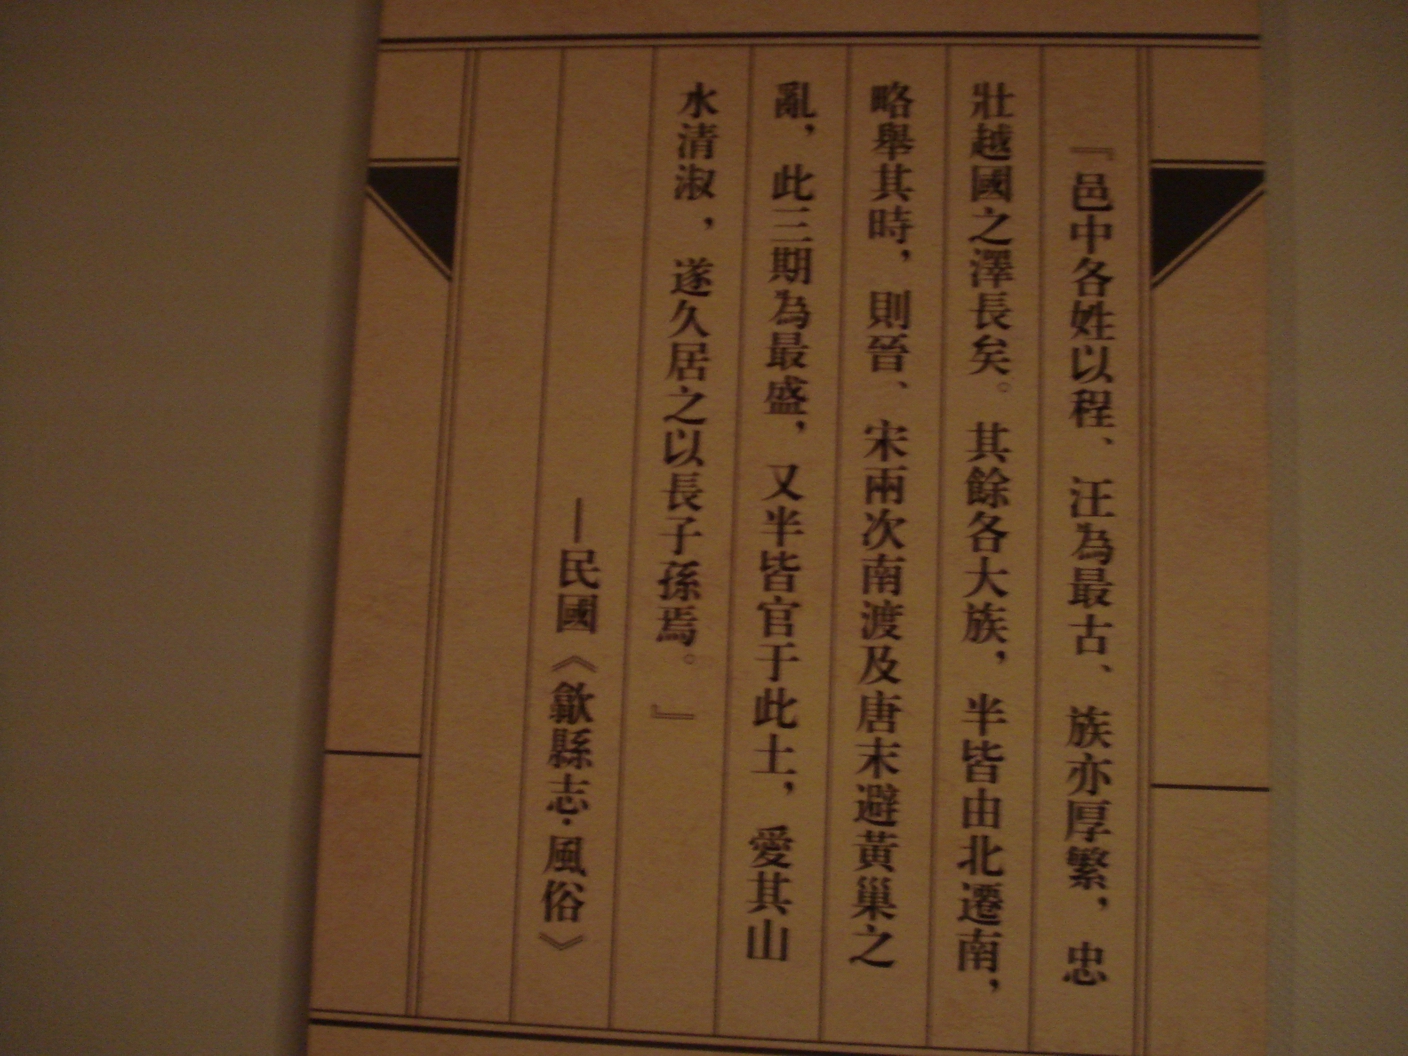 『邑中各姓以程、汪為最古、族亦厚繁，忠
壯越國之澤長矣。其餘各大族，半皆由北遷南，
略舉其時，則晉、宋兩次南渡及唐末避黃巢之
亂，此三期為最盛，又半皆官于此土，愛其山
水清淑，遂久居之以長子孫焉。』
—民國《歙縣志·風俗》